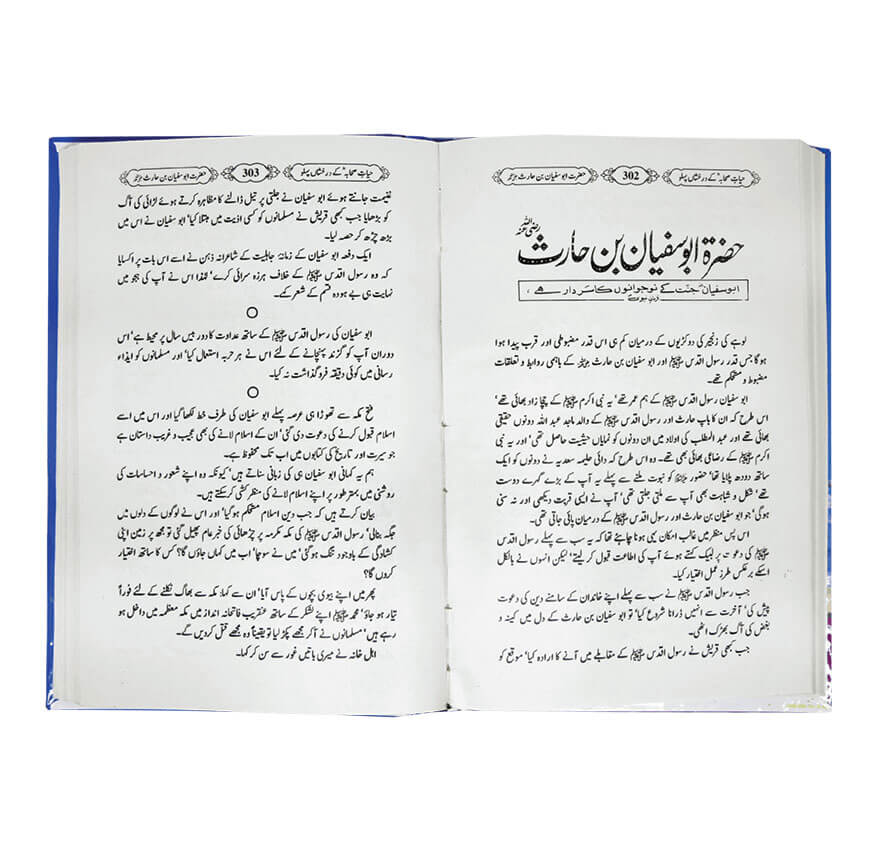 حیاتِ صحابہؓ کے درخشاں پہلو 302 حضرت ابو سفیان بن حارث رضی اللہ عنہ
حضرۃ ابو سفیان بن حارث رضی اللہ عنہ
ابو سفیان جنت کے نوجوانوں کا سردار ہے،
لوہے کی زنجیر کی دو کڑیوں کے درمیان کم ہی اس قدر مضبوطی اور قرب پیدا ہوا
ہو گا جس قدر رسول اقدس ﷺ اور ابو سفیان بن حارث رضی اللہ عنہ کے باہمی روابط و تعلقات
مضبوط و مستحکم تھے۔
ابو سفیان رسول اقدس ﷺ کے ہم عمر تھے' یہ نبی اکرم ﷺ کے چچا زاد بھائی تھے'
اس طرح کہ ان کا باپ حارث اور رسول اقدس ﷺ کے والد ماجد عبد اللہ دونوں حقیقی
بھائی تھے اور عبد المطلب کی اولاد میں ان دونوں کو نمایاں حیثیت حاصل تھی' اور یہ نبی
اکرم ﷺ کے رضاعی بھائی بھی تھے۔ وہ اس طرح کہ دائی حلیمہ سعدیہ نے دونوں کو ایک
ساتھ دودھ پلایا تھا' حضور ﷺ کو نبوت ملنے سے پہلے یہ آپ کے بڑے گہرے دوست
تھے' شکل و شباہت بھی آپ سے ملتی جلتی تھی' آپ نے ایسی قربت دیکھی اور نہ سنی
ہوگی' جو ابو سفیان بن حارث اور رسول اقدس ﷺ کے درمیان پائی جاتی تھی۔
اس پس منظر میں غالب امکان یہی ہونا چاہئے تھا کہ یہ سب سے پہلے رسول اقدس
ﷺ کی دعوت پر لبیک کہتے ہوئے آپ کی اطاعت قبول کر لیتے' لیکن انہوں نے بالکل
اسکے برعکس طرز عمل اختیار کیا۔
جب رسول اقدس ﷺ نے سب سے پہلے اپنے خاندان کے سامنے دین کی دعوت
پیش کی' آخرت سے انہیں ڈرانا شروع کیا' تو ابو سفیان بن حارث کے دل میں کینہ و
بغض کی آگ بھڑک اٹھی۔
جب کبھی قریش نے رسول اقدس ﷺ کے مقابلے میں آنے کا ارادہ کیا' موقع کو
حیاتِ صحابہؓ کے درخشاں پہلو 303 حضرت ابو سفیان بن حارث رضی اللہ عنہ
غنیمت جانتے ہوئے ابو سفیان نے جلتی پر تیل ڈالنے کا مظاہرہ کرتے ہوئے لڑائی کی آگ
کو بڑھایا جب کبھی قریش نے مسلمانوں کو کسی اذیت میں مبتلا کیا' ابو سفیان نے اس میں
بڑھ چڑھ کر حصہ لیا۔
ایک دفعہ ابو سفیان کے زمانۂ جاہلیت کے شاعرانہ ذہن نے اسے اس بات پر اکسایا
کہ وہ رسول اقدس ﷺ کے خلاف ہرزہ سرائی کرے' لہٰذا اس نے آپ کی ہجو میں
نہایت ہی بے ہودہ قسم کے شعر کہے۔
ابو سفیان کی رسول اقدس ﷺ کے ساتھ عداوت کا دور بیس سال پر محیط ہے' اس
دوران آپ کو گزند پہنچانے کے لئے اس نے ہر حربہ استعمال کیا' اور مسلمانوں کو ایذاء
رسانی میں کوئی دقیقہ فروگذاشت نہ کیا۔
فتح مکہ سے تھوڑا ہی عرصہ پہلے ابو سفیان کی طرف خط لکھا گیا اور اس میں اسے
اسلام قبول کرنے کی دعوت دی گئی' ان کے اسلام لانے کی بھی عجیب و غریب داستان ہے
جو سیرت اور تاریخ کی کتابوں میں اب تک محفوظ ہے۔
ہم یہ کہانی ابو سفیان ہی کی زبانی سناتے ہیں' کیونکہ وہ اپنے شعور و احساسات کی
روشنی میں بہتر طور پر اپنے اسلام لانے کی منظر کشی کر سکتے ہیں۔
بیان کرتے ہیں کہ جب دین اسلام مستحکم ہو گیا' اور اس نے لوگوں کے دلوں میں
جگہ بنالی' رسول اقدس ﷺ کی مکہ مکرمہ پر چڑھائی کی خبر عام پھیل گئی تو مجھ پر زمین اپنی
کشادگی کے باوجود تنگ ہو گئی' میں نے سوچا' اب میں کہاں جاؤں گا؟ کس کا ساتھ اختیار
کروں گا؟
پھر میں اپنے بیوی بچوں کے پاس آیا' ان سے کہا: مکہ سے بھاگ نکلنے کے لئے فوراً
تیار ہو جاؤ' محمد ﷺ اپنے لشکر کے ساتھ عنقریب فاتحانہ انداز میں مکہ معظمہ میں داخل ہو
رہے ہیں' مسلمانوں نے آکر مجھے پکڑ لیا تو یقیناً وہ مجھے قتل کر دیں گے۔
اہل خانہ نے میری باتیں غور سے سن کر کہا۔